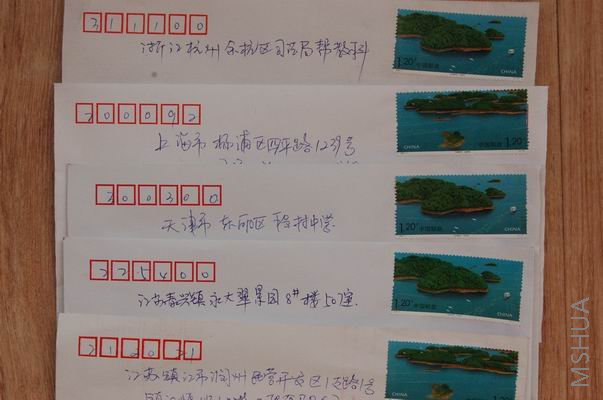 311100
浙江杭州余杭区司法局帮教科
1.20
中国邮政
CHINA
200092
上海市杨浦区四平路1239号
CHINA
中国邮政
1.20
300300
天津市东丽区
中学
1.20
中国邮政
CHINA
225400
江苏泰兴镇永大翠景园8#楼501室
1.20
中国邮政
CHINA
212021
江苏镇江市润州民营开发区1支路1号
CHINA
中国邮政
1.20
MSHUA